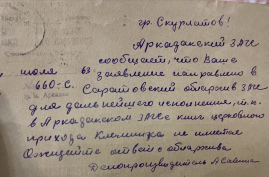 гр. Скурлатов!
Аркадакский ЗАГС
сообщает, что Ваше
июля 63 заявление направлено в
660-С. Саратовский облархив ЗАГС
для дальнейшего исполнения, т.к.
в Аркадакском ЗАГСе книг церковного
прихода не имеется
Ожидайте ответ с облархива
Делопроизводитель